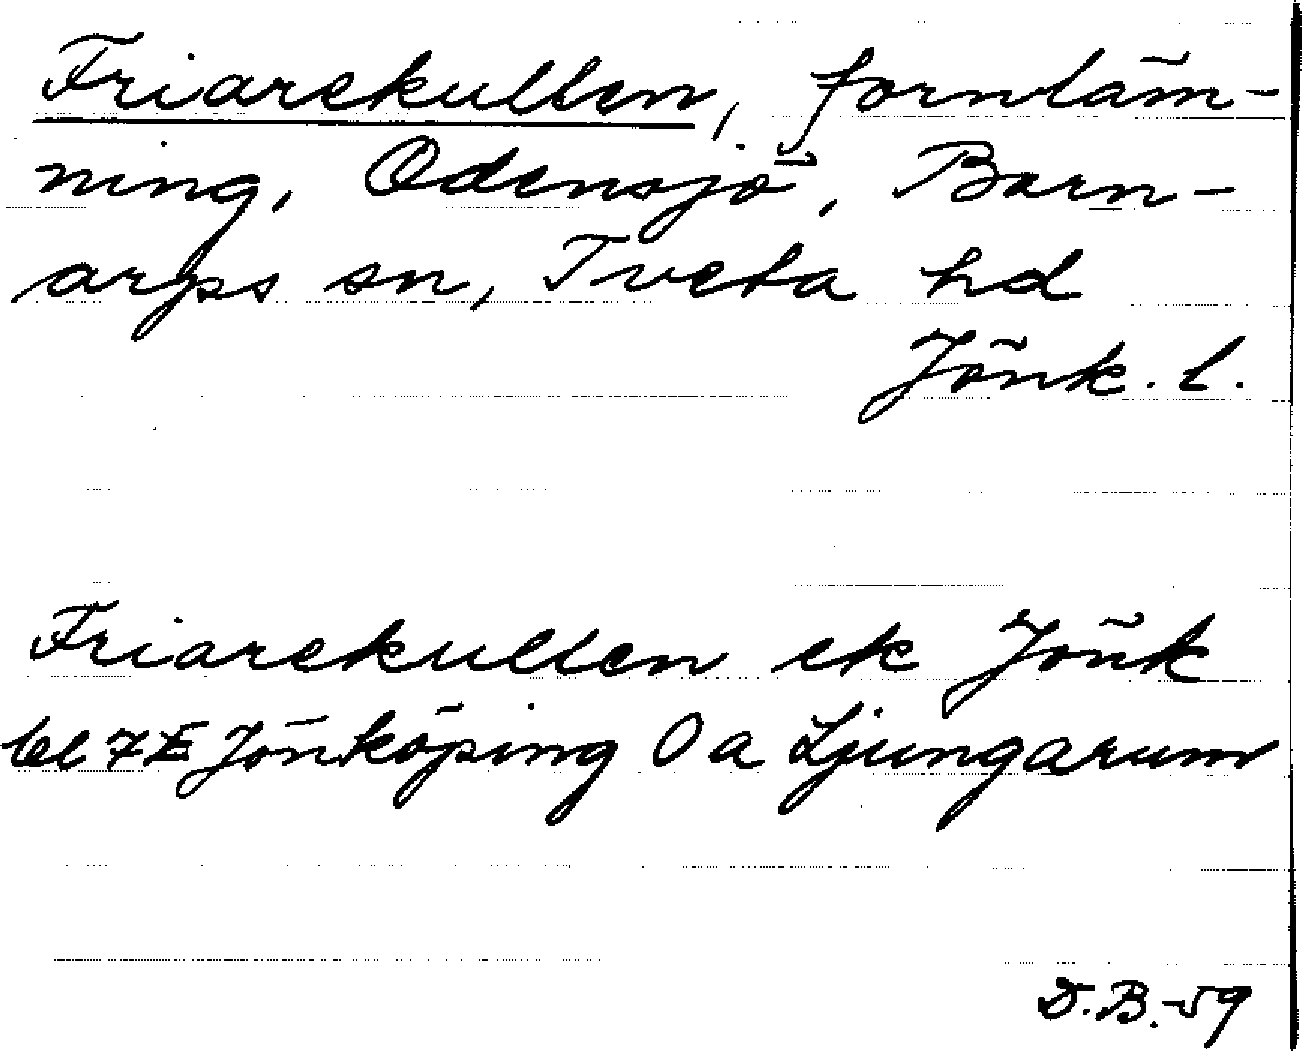 Friarekullen, fornläm-
ning, Odensjö, Barn-
arps sn, Tveta hd
Jönk. l.
Friarekullen ek Jönk
bl 7E Jönköping Oa Ljungarum
D.B.-59